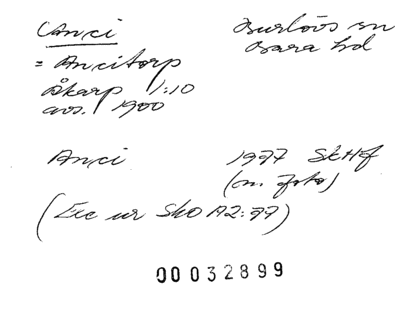 Anci
Burlövs sn
Bara hd
= Ancitorp
Åkarp 1:10
avs. 1900
Anci
1977 SkHf
(m. foto)
(Exc ur SkO A2:77)
00032899